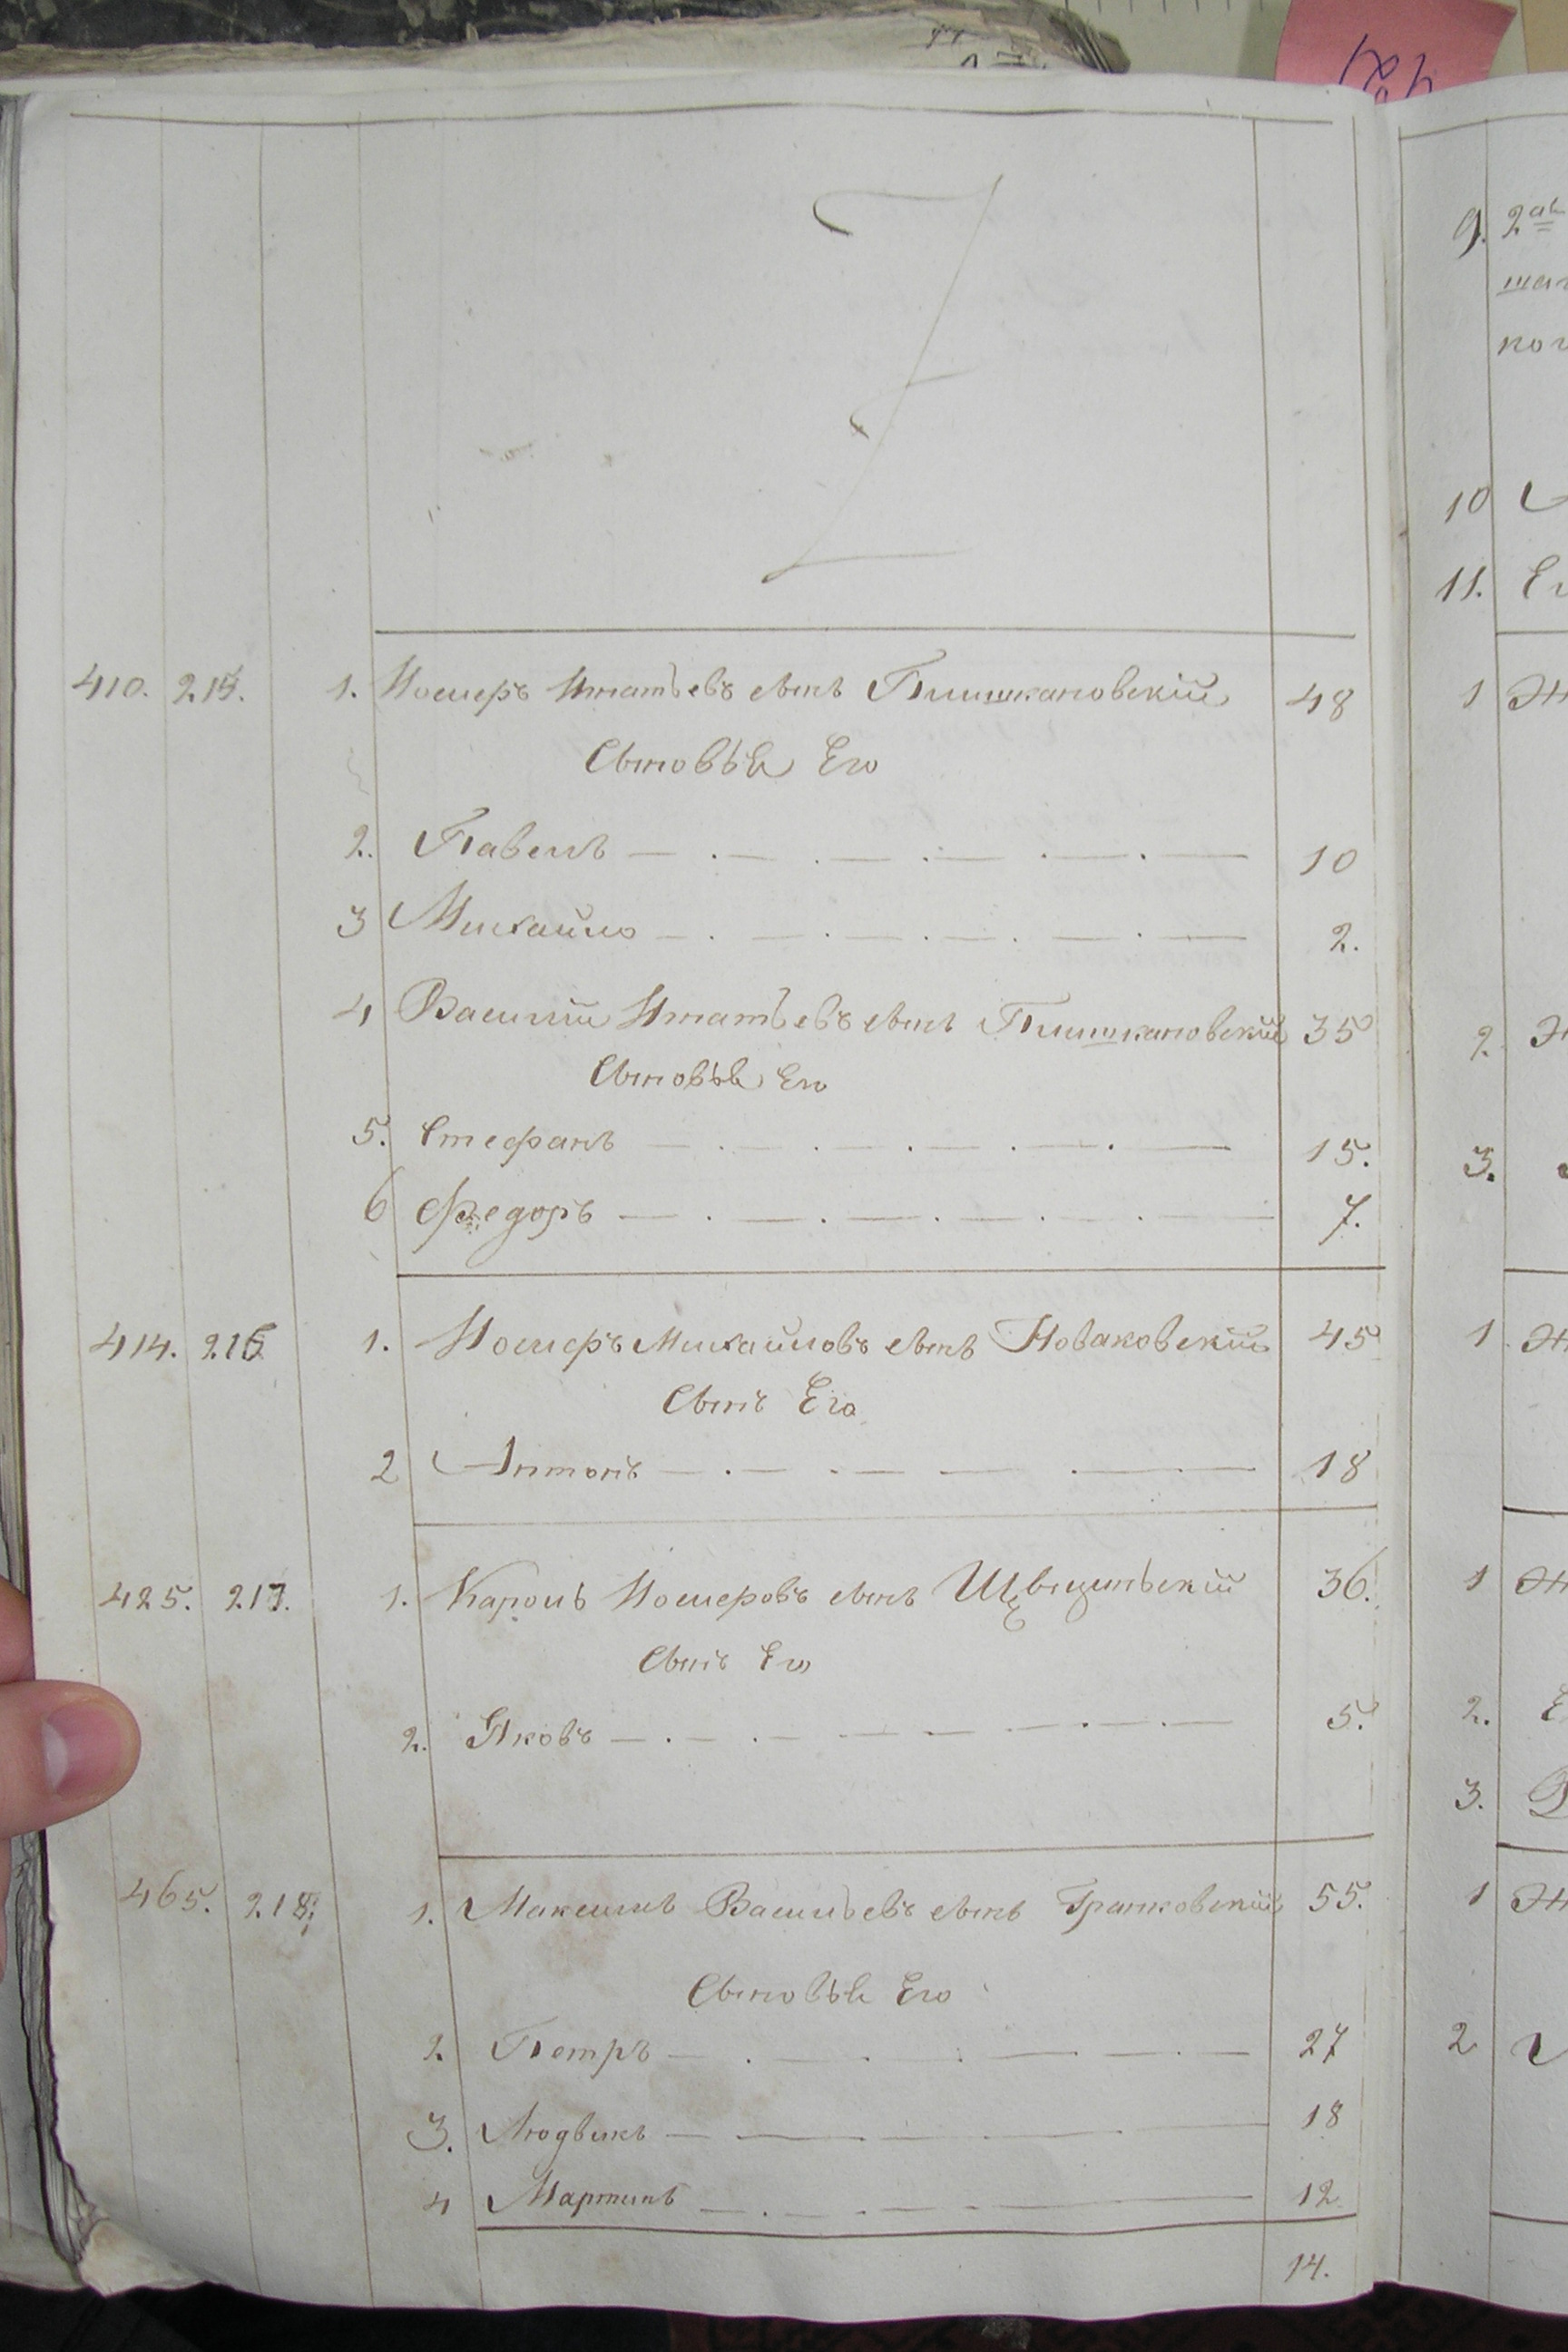 410. 215. 1. Іосифъ Игнатьевъ сынъ Пишкановскій 48
Сыновья Его
2. Павелъ 10
3 Михайло 2.
4 Василий Игнатьевъ сынъ Пишкановскій 35
Сыновья Его
5. Стефанъ 15.
6 Федоръ 7.
414. 216 1. Іосифъ Михайловъ сынъ Новаковскій 45
Сынъ Его
2 Антонъ 18
425. 217. 1. Кароль Іосифовъ сынъ 36.
Сынъ Его
2. Яковъ 5.
465. 218. 1. Максимъ Васильевъ сынъ 55.
Сыновья Его
2. Петръ 27
3. Людвикъ 18
4 Мартинъ 12
14.
9. 2
10
11.
1
2.
3.
1
1
2.
3.
1
2